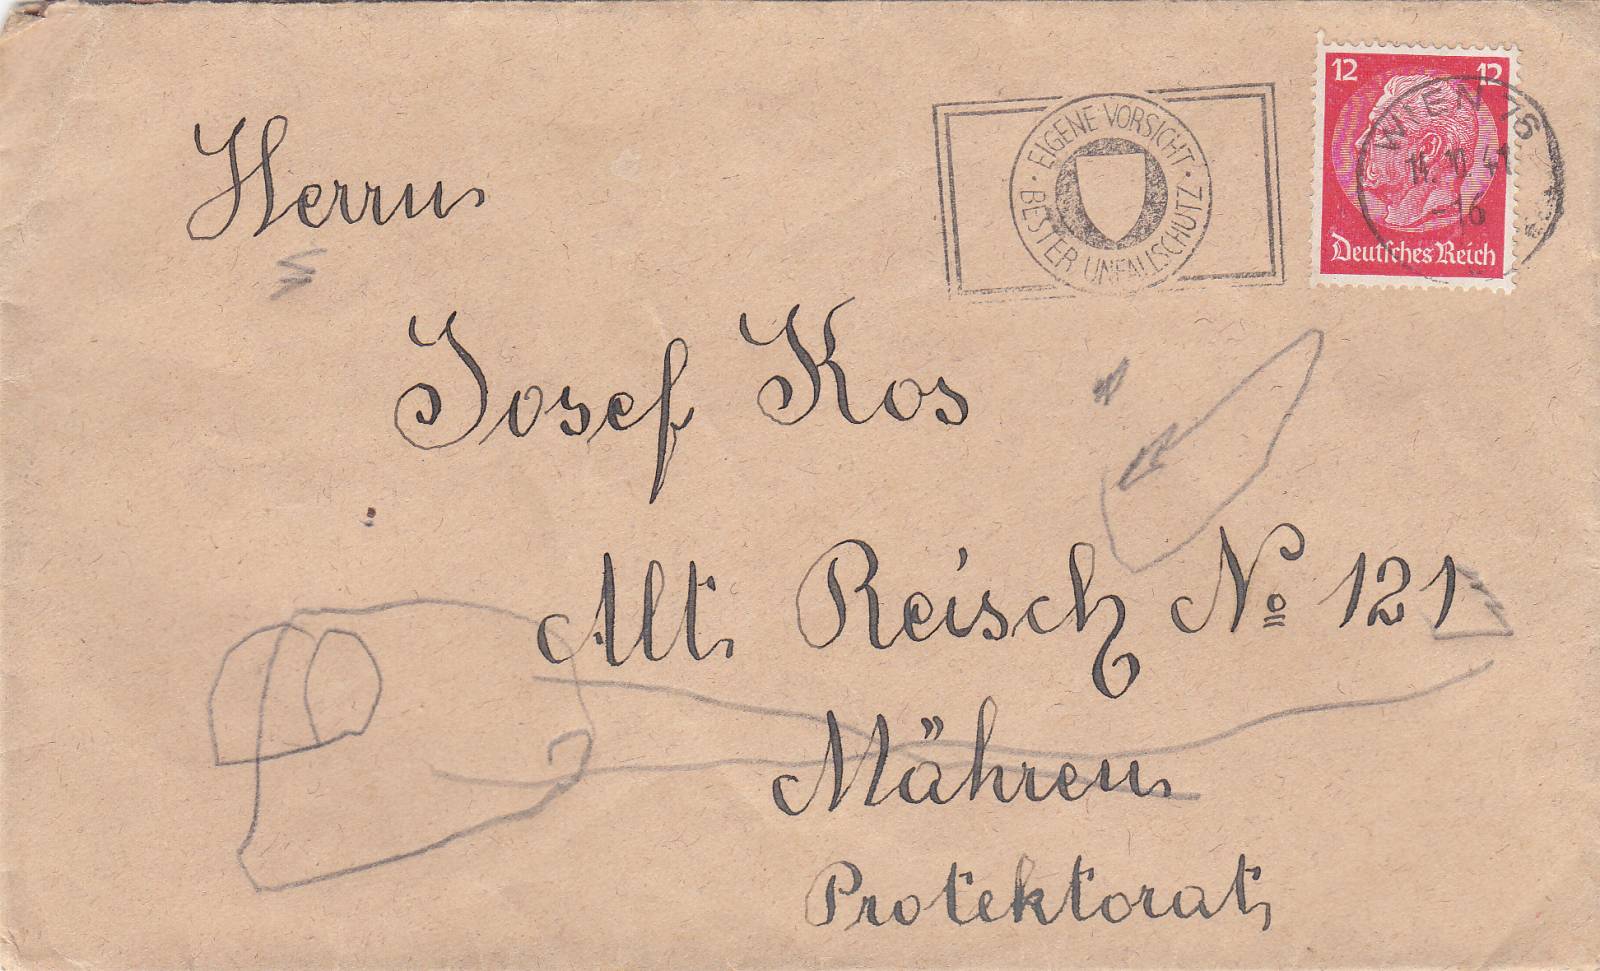 EIGENE VORSICHT · BESTER UNFALLSCHUTZ ·
12 12
WIEN 76
41
-16
Deutsches Reich
Herrn
Josef Kos
Alt Reisch No 121
Mähren
Protektorat